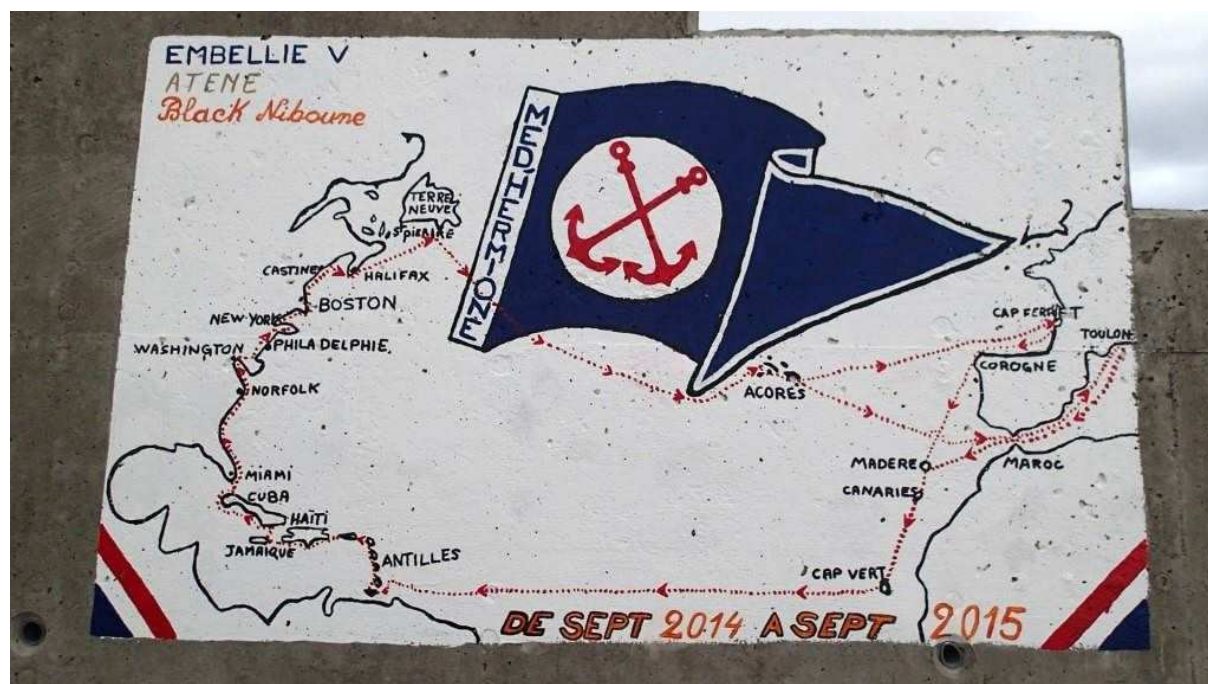 EMBELLIE V
ATENE
Black Niboume
MED.HERMIONE
TERRE
NEUVE
St PIERRE
CASTINE
HALIFAX
BOSTON
NEW-YORK
PHILADELPHIE.
WASHINGTON
NORFOLK
MIAMI
CUBA
HAÏTI
JAMAIQUE
ANTILLES
CAP FERRET
TOULON
COROGNE
ACORES
MADERE
MAROC
CANARIES
CAP VERT
DE SEPT 2014 A SEPT 2015